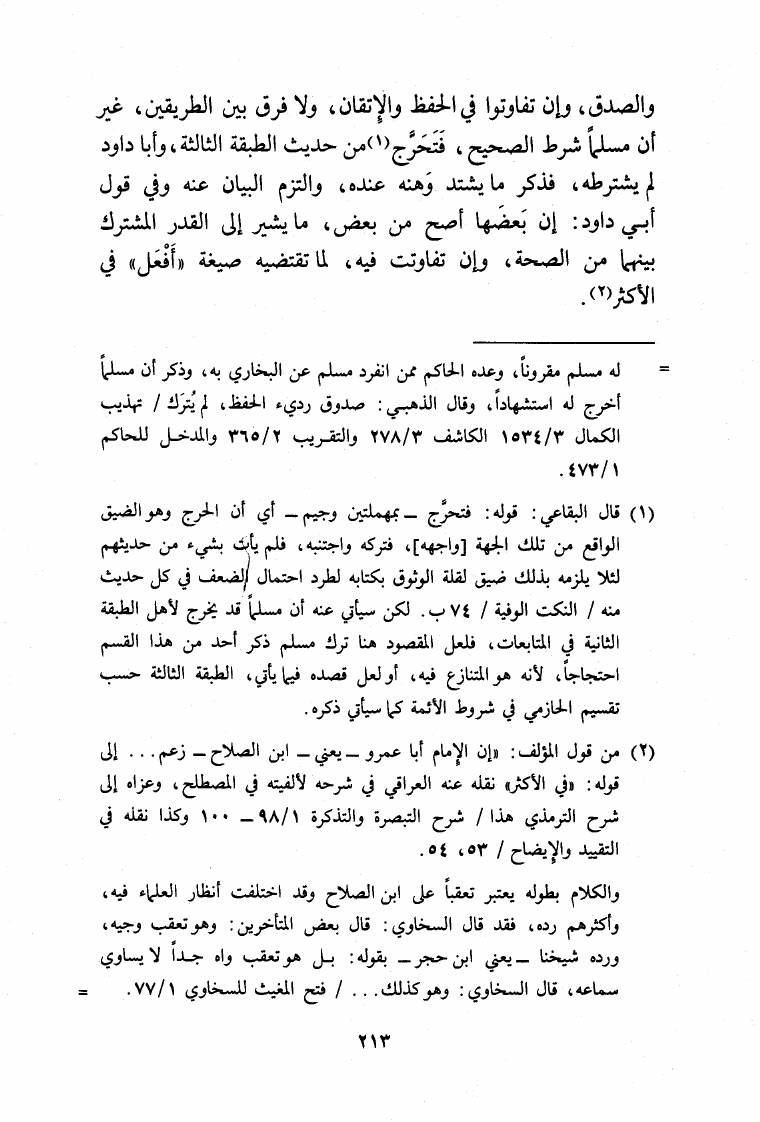 والصدق، وإن تفاوتوا في الحفظ والإتقان، ولا فرق بين الطريقين، غير
أن مسلماً شرط الصحيح، فَتَحَرَّج(١) من حديث الطبقة الثالثة، وأبا داود
لم يشترطه، فذكر ما يشتد وَهنه عنده، والتزم البيان عنه وفي قول
أبي داود: إن بَعضَها أصح من بعض، ما يشير إلى القدر المشترك
بينهما من الصحة، وإن تفاوتت فيه، لما تقتضيه صيغة «أَفْعَل» في
الأكثر(٢).
= له مسلم مقروناً، وعده الحاكم ممن انفرد مسلم عن البخاري به، وذكر أن مسلماً
أخرج له استشهاداً، وقال الذهبي: صدوق رديء الحفظ، لم يُترَك / تهذيب
الكمال ١٥٣٤/٣ الكاشف ٢٧٨/٣ والتقريب ٣٦٥/٢ والمدخل للحاكم
٤٧٣/١.
(١) قال البقاعي: قوله: فتحرَّج ــ بمهملتين وجيم ــ أي أن الحرج وهو الضيق
الواقع من تلك الجهة [واجهه]، فتركه واجتنبه، فلم يأت بشيء من حديثهم
لئلا يلزمه بذلك ضيق لقلة الوثوق بكتابه لطرد احتمال الضعف في كل حديث
منه / النكت الوفية / ٧٤ ب. لكن سيأتي عنه أن مسلماً قد يخرج لأهل الطبقة
الثانية في المتابعات، فلعل المقصود هنا ترك مسلم ذكر أحد من هذا القسم
احتجاجاً، لأنه هو المتنازع فيه، أو لعل قصده فيما يأتي، الطبقة الثالثة حسب
تقسيم الحازمي في شروط الأئمة كما سيأتي ذكره.
(٢) من قول المؤلف: «إن الإمام أبا عمرو ــ يعني ــ ابن الصلاح ــ زعم... إلى
قوله: «في الأكثر» نقله عنه العراقي في شرحه لألفيته في المصطلح، وعزاه إلى
شرح الترمذي هذا / شرح التبصرة والتذكرة ٩٨/١ ــ ١٠٠ وكذا نقله في
التقييد والإيضاح / ٥٣، ٥٤.
والكلام بطوله يعتبر تعقباً على ابن الصلاح وقد اختلفت أنظار العلماء فيه،
وأكثرهم رده، فقد قال السخاوي: قال بعض المتأخرين: وهو تعقب وجيه،
ورده شيخنا ــ يعني ابن حجر ــ بقوله: بل هو تعقب واه جداً لا يساوي
سماعه، قال السخاوي: وهو كذلك... / فتح المغيث للسخاوي ٧٧/١. =
٢١٣